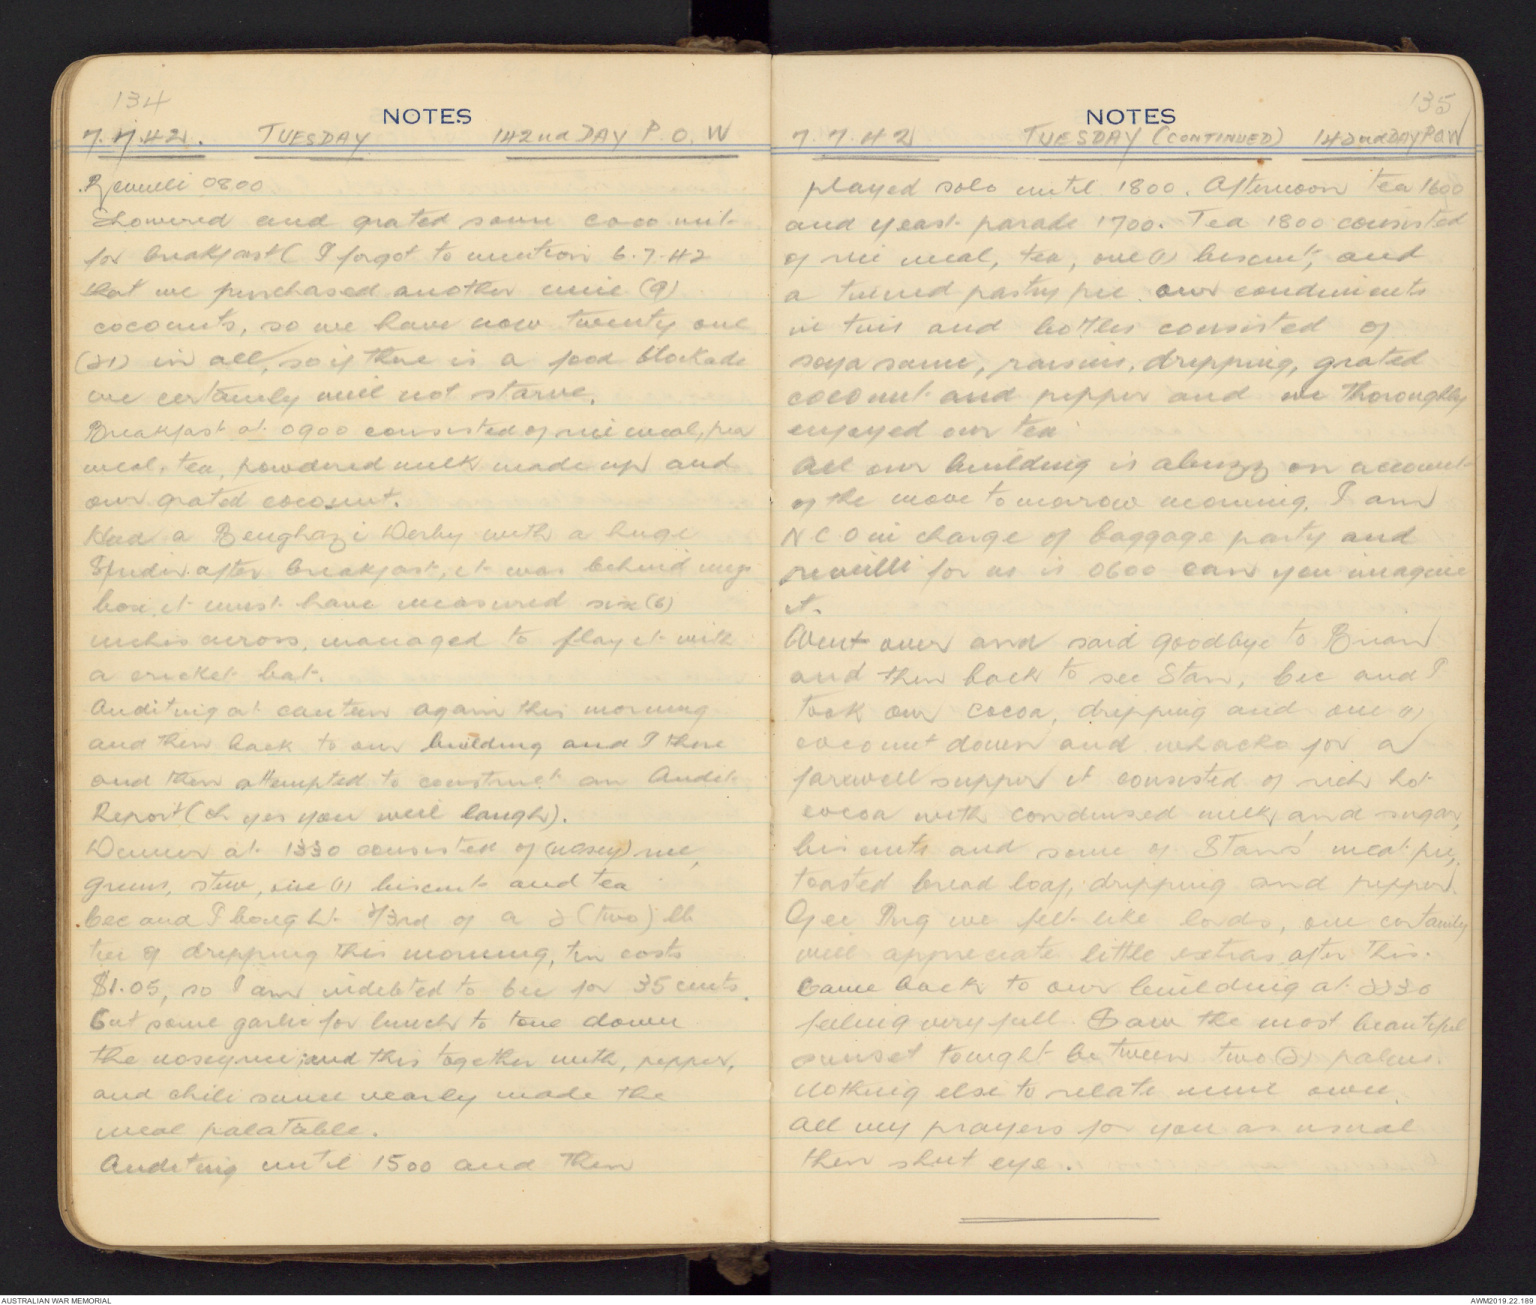 134
NOTES
7.7.42. TUESDAY 142nd DAY P.O.W
Reveille 0800
Showered and grated some cocoanut
for breakfast ( I forgot to mention 6.7.42
that we purchased another nine (9)
coconuts, so we have now twenty one
(21) in all, so if there is a food blockade
we certainly will not starve.
Breakfast at 0900 consisted of rice meal, pea
meal, tea, powdered milk made up and
our grated coconut.
Had a Benghazi Derby with a huge
Spider after breakfast, it was behind my
box, it must have measured six (6)
inches across, managed to flay it with
a cricket bat.
Auditing at canteen again this morning
and then back to our building and I there
and then attempted to construct an Audit
Report (oh yes you well laugh).
Dinner at 1330 consisted of (nosey) rice,
greens, stew, one (1) biscuit and tea
Cec and I bought 2/3rd of a 2 (two) lb
tin of dripping this morning, tin costs
$1.05, so I am indebted to Cec for 35 cents.
Cut some garlic for lunch to tone down
the nosey rice, and this together with, pepper,
and chili sauce nearly made the
meal palatable.
Auditing until 1500 and then
135
NOTES
7 7.42 TUESDAY (CONTINUED) 142nd DAY P.O.W
played solo until 1800. Afternoon tea 1600
and yeast parade 1700. Tea 1800 consisted
of rice meal, tea, one (1) biscuit, and
a tinned pastry pie our condiments
in tins and bottles consisted of
soya sauce, raisins, dripping, grated
coconut and pepper and we thoroughly
enjoyed our tea
All our building is abuzz on account
of the move tomorrow morning. I am
N C O in charge of baggage party and
reveille for us is 0600 can you imagine
it.
Went over and said goodbye to Brian
and then back to see Stan, Cec and I
took our cocoa, dripping and one (1)
coconut down and whacko for a
farewell supper it consisted of rich hot
cocoa with condensed milk and sugar,
biscuits and some of Stans' meat pie,
toasted bread loaf, dripping and pepper.
Gee Peg we felt like lords, one certainly
will appreciate little extras after this.
Came back to our building at 2230
feeling very full. Saw the most beautiful
sunset tonight between two (2) palms.
Nothing else to relate mine own.
All my prayers for you as usual
then shut eye.
AUSTRALIAN WAR MEMORIAL
AWM2019.22.189